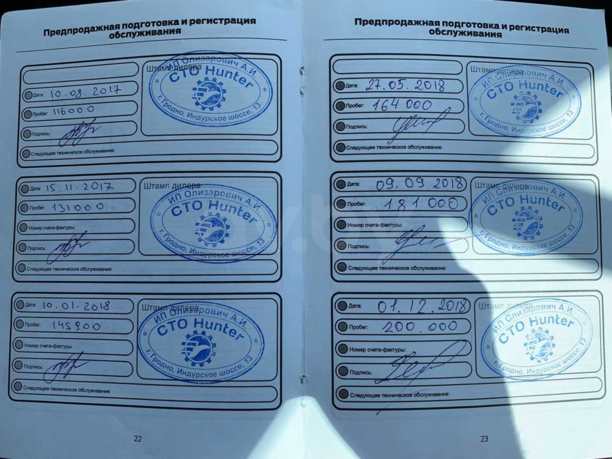 Предпродажная подготовка и регистрация
обслуживания
Штамп дилера
Дата: 10.08.2017
Пробег: 116000
Подпись:
Следующее техническое обслуживание:
ИП Олизарович А.И.
СТО Hunter
г. Гродно, Индурское шоссе, 13
Дата: 15.11.2017
Штамп дилера
Пробег: 131000
Номер счета-фактуры:
Подпись:
Следующее техническое обслуживание:
ИП Олизарович А.И.
СТО Hunter
г. Гродно, Индурское шоссе, 13
Дата: 10.01.2018
Штамп дилера
Пробег: 145200
Номер счета-фактуры:
Подпись:
Следующее техническое обслуживание:
ИП Олизарович А.И.
СТО Hunter
г. Гродно, Индурское шоссе, 13
22
Предпродажная подготовка и регистрация
обслуживания
Дата: 27.05.2018
Штамп
Пробег: 164000
Подпись:
Следующее техническое обслуживание:
ИП Олизарович А.И.
СТО Hunter
г. Гродно, Индурское шоссе, 13
Дата: 09.09 2018
Штамп дилера
Пробег: 181000
Номер счета-фактуры:
Подпись:
Следующее техническое обслуживание:
ИП Олизарович А.И.
СТО Hunter
г. Гродно, Индурское шоссе, 13
Дата: 01.12.2018
Штамп дилера
Пробег: 200.000
Номер счета-фактуры:
Подпись:
Следующее техническое обслуживание:
ИП Олизарович А.И.
СТО Hunter
г. Гродно, Индурское шоссе, 13
23